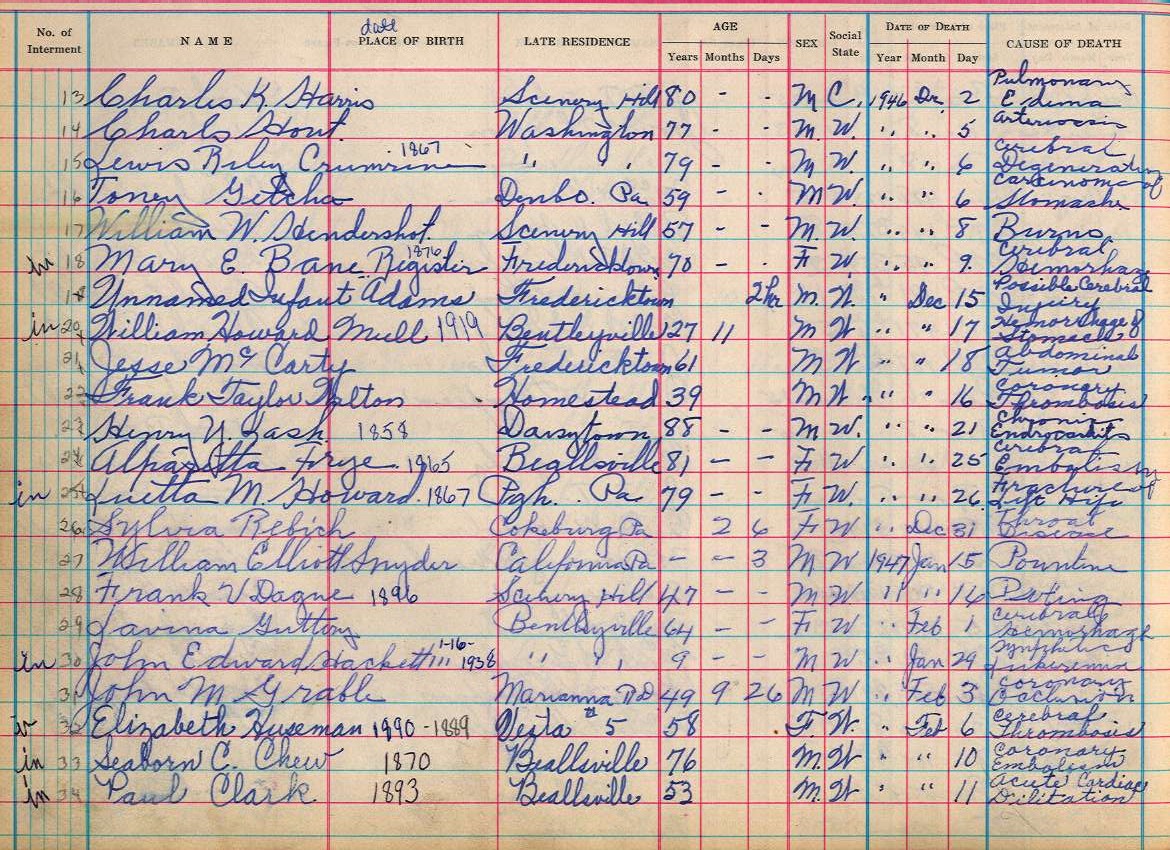 No. of Interment NAME date PLACE OF BIRTH LATE RESIDENCE AGE Years Months Days SEX Social State DATE OF DEATH Year Month Day CAUSE OF DEATH
13 Charles K. Harris Scenery Hill 80 - - M C. 1946 De. 2 Pulmonary Edema
14 Charls Hout Washington 77 - - M. W. " " 5 Arteriocsis
15 Lewis Riley Crumrine 1867 " " 79 - M W. " " 6 Cerebral Degenerating
16 Toney Denbo. Pa 59 - - M W. " " 6 Carcinoma of Stomache
17 William W. Hendershot Scenery Hill 57 - - M. W. " " 8 Burns
in 18 Mary E. Bane Register 1876 Fredericktown 70 - - F W " " 9. Cerebral Hemorhage
19 Unnamed Infant Adams Fredericktown 2hr M. W. " Dec 15 Possible Cerebral Injury
in 20 William Howard Mull 1919 Bentleyville 27 11 M W " " 17 Hemorrhage of Stomach
21 Jesse Mc Carty Fredericktown 61 M W " " 18 Abdominal Tumor
22 Frank Taylor Homestead 39 M W " " 16 Coronary Thrombosis
23 Henry Y. Lash 1858 Daisytown 88 - - M W. " " 21 Chronic
24 Frye 1965 Beallsville 81 - - F W " " 25 Cerebral
in 25 Luetta M. Howard. 1867 Pgh. Pa 79 - - F W. " " 26 Fracture of Left Hip
26 Sylvia Rebich Cokeburg Pa 2 6 F W " Dec 31 Throat Disease
27 William Elliott Snyder California Pa - - 3 M W 1947 Jan 15
28 Frank V Dague 1896 Scenery Hill 47 - - M W " " 14
29 Lavina Guttry Bentleyville 64 - - F W " Feb 1 Cerebral Hemorhage
in 30 John Edward Hackett III 1-16-1938 " " 9 - - M W " Jan 29
31 John M Grable Marianna RD 49 9 26 M W " Feb 3 Coronary Occlusion
in 32 Elizabeth Huseman 1890 - 1889 Vesta #5 58 F. W. " Feb 6 Cerebral Thrombosis
in 33 Seaborn C. Chew 1870 Beallsville 76 M. W " " 10 Coronary Embolism
in 34 Paul Clark 1893 Beallsville 53 M. W " " 11 Acute Cardiac Dilitation